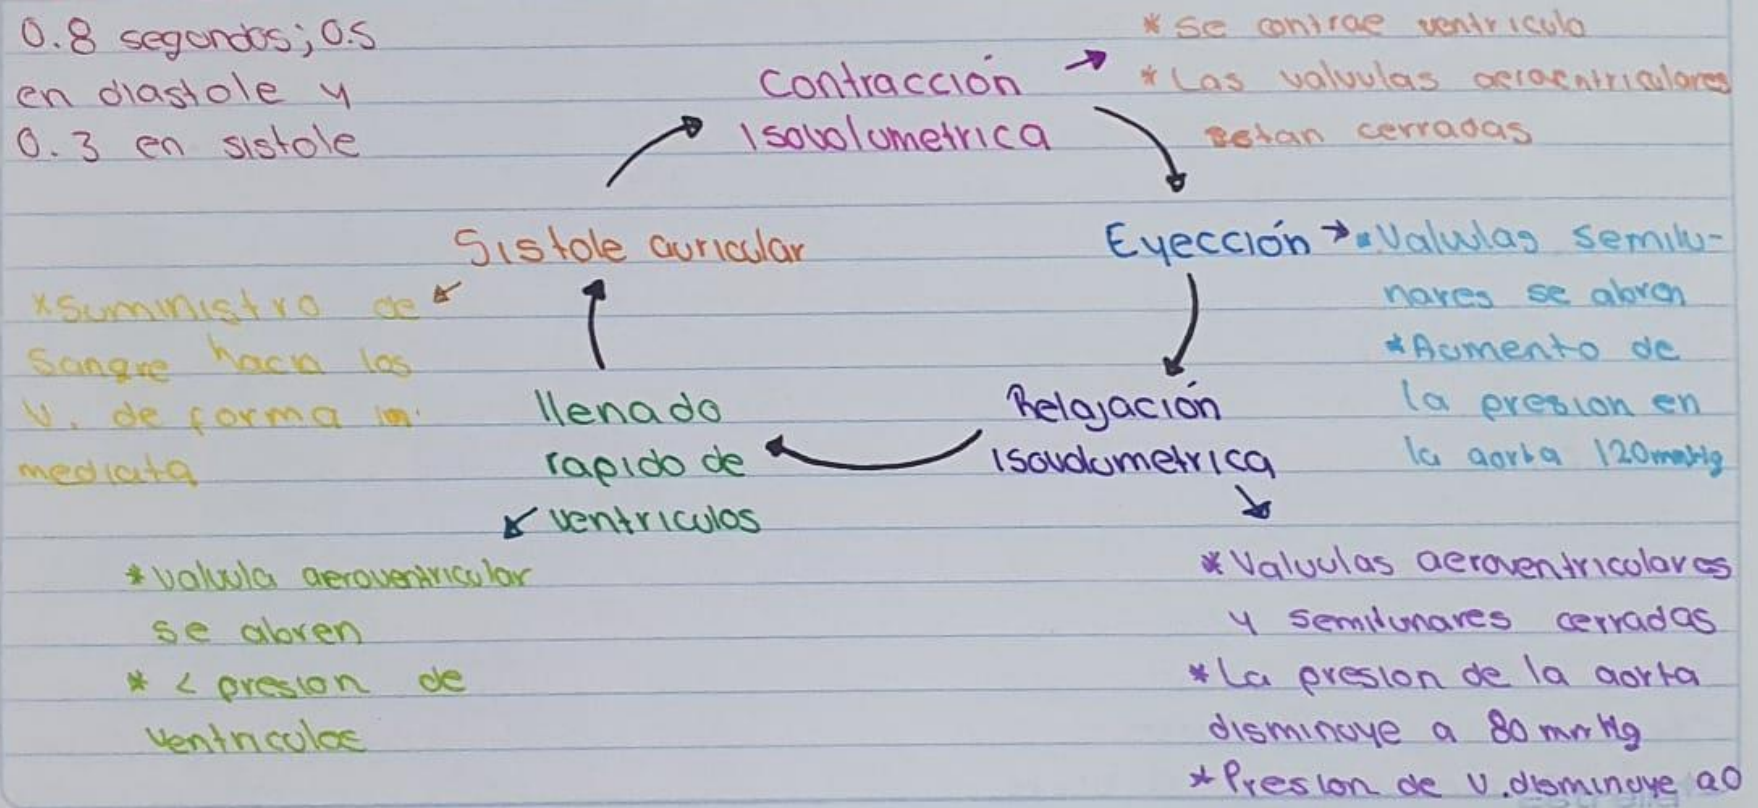 0.8 segundos; 0.5
en diastole y
0.3 en sistole
Contracción
Isovolumetrica
* Se contrae ventriculo
* Las valvulas aeroentriculares
estan cerradas
Eyección
* Valvulas semilu-
nares se abren
* Aumento de
la presion en
la aorta 120mmHg
Relajación
isovolumetrica
* Valvulas aeroventriculares
y semilunares cerradas
* La presion de la aorta
disminuye a 80 mmHg
* Presion de V. disminuye a 0
llenado
rapido de
ventriculos
* valvula aeroventricular
se abren
* < presion de
ventriculos
Sistole auricular
* Suministro de
Sangre hacia los
V. de forma in
mediata